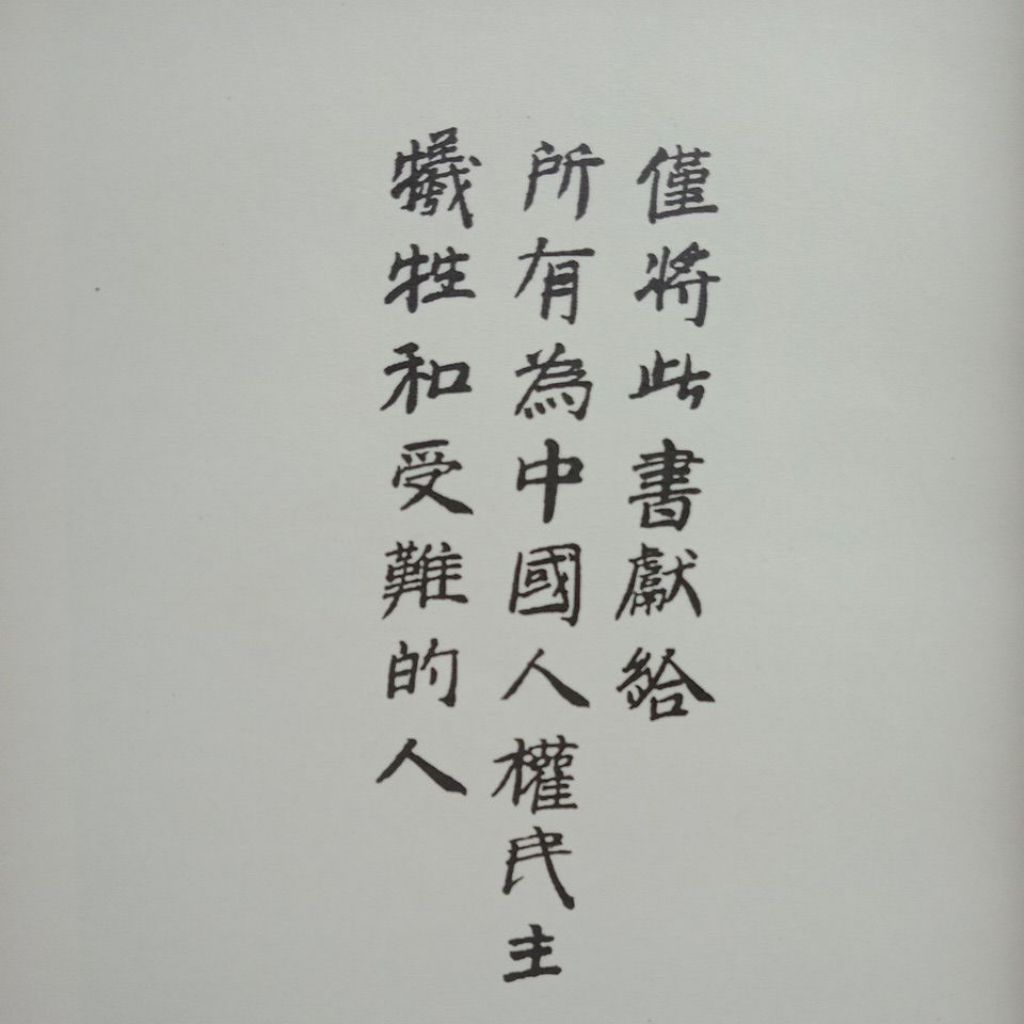 僅將此書獻給
所有為中國人權民主
犧牲和受難的人